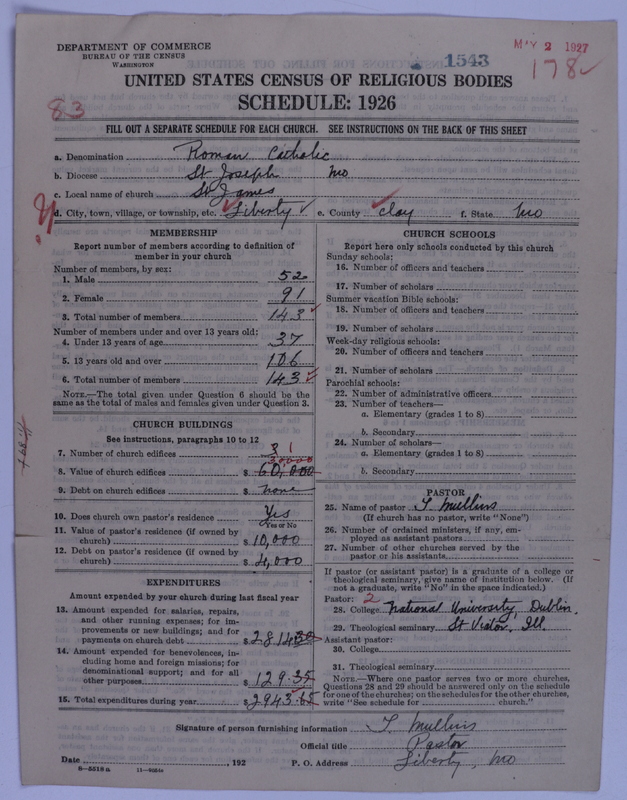 DEPARTMENT OF COMMERCE
BUREAU OF THE CENSUS
WASHINGTON
1543
MAY 2 1927
178
UNITED STATES CENSUS OF RELIGIOUS BODIES
83
SCHEDULE: 1926
FILL OUT A SEPARATE SCHEDULE FOR EACH CHURCH. SEE INSTRUCTIONS ON THE BACK OF THIS SHEET
a. Denomination Roman Catholic
b. Diocese St Joseph Mo
c. Local name of church St James
d. City, town, village, or township, etc. Liberty e. County Clay f. State Mo
MEMBERSHIP
Report number of members according to definition of
member in your church
Number of members, by sex:
1. Male 52
2. Female 91
3. Total number of members 143
Number of members under and over 13 years old:
4. Under 13 years of age 37
5. 13 years old and over 106
6. Total number of members 143
NOTE.—The total given under Question 6 should be the
same as the total of males and females given under Question 3.
CHURCH BUILDINGS
See instructions, paragraphs 10 to 12
7. Number of church edifices 3 1
20,000
8. Value of church edifices $ 60,000
9. Debt on church edifices $ none
10. Does church own pastor's residence Yes
Yes or No
11. Value of pastor's residence (if owned by
church) $ 10,000
12. Debt on pastor's residence (if owned by
church) $ 4,000
EXPENDITURES
Amount expended by your church during last fiscal year
13. Amount expended for salaries, repairs,
and other running expenses; for im-
provements or new buildings; and for
payments on church debt $ 2814.30
14. Amount expended for benevolences, in-
cluding home and foreign missions; for
denominational support; and for all
other purposes $ 129.35
15. Total expenditures during year $ 2943.65
CHURCH SCHOOLS
Report here only schools conducted by this church
Sunday schools:
16. Number of officers and teachers
17. Number of scholars
Summer vacation Bible schools:
18. Number of officers and teachers
19. Number of scholars
Week-day religious schools:
20. Number of officers and teachers
21. Number of scholars
Parochial schools:
22. Number of administrative officers
23. Number of teachers—
a. Elementary (grades 1 to 8)
b. Secondary
24. Number of scholars—
a. Elementary (grades 1 to 8)
b. Secondary
PASTOR
25. Name of pastor T Mullins
(If church has no pastor, write "None")
26. Number of ordained ministers, if any, em-
ployed as assistant pastors
27. Number of other churches served by the
pastor or his assistants
If pastor (or assistant pastor) is a graduate of a college or
theological seminary, give name of institution below. (If
not a graduate, write "No" in the space indicated.)
Pastor: 2
28. College National University, Dublin.
29. Theological seminary St Viator, Ill.
Assistant pastor:
30. College
31. Theological seminary
NOTE.—Where one pastor serves two or more churches,
Questions 28 and 29 should be answered only on the schedule
for one of the churches; on the schedules for the other churches,
write "See schedule for church."
Signature of person furnishing information T. Mullins
Official title Pastor
Date , 192 P. O. Address Liberty, Mo
8—5518a